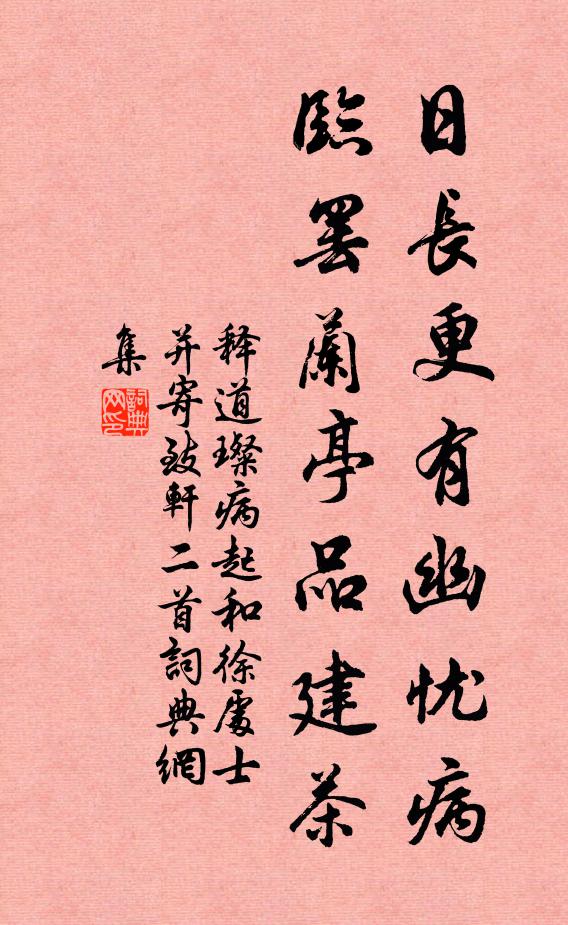 日長更有幽忧病
臨罢蘭亭品建茶
释道璨病起和徐處士
并寄致軒二首詞典網
集
詞典网印